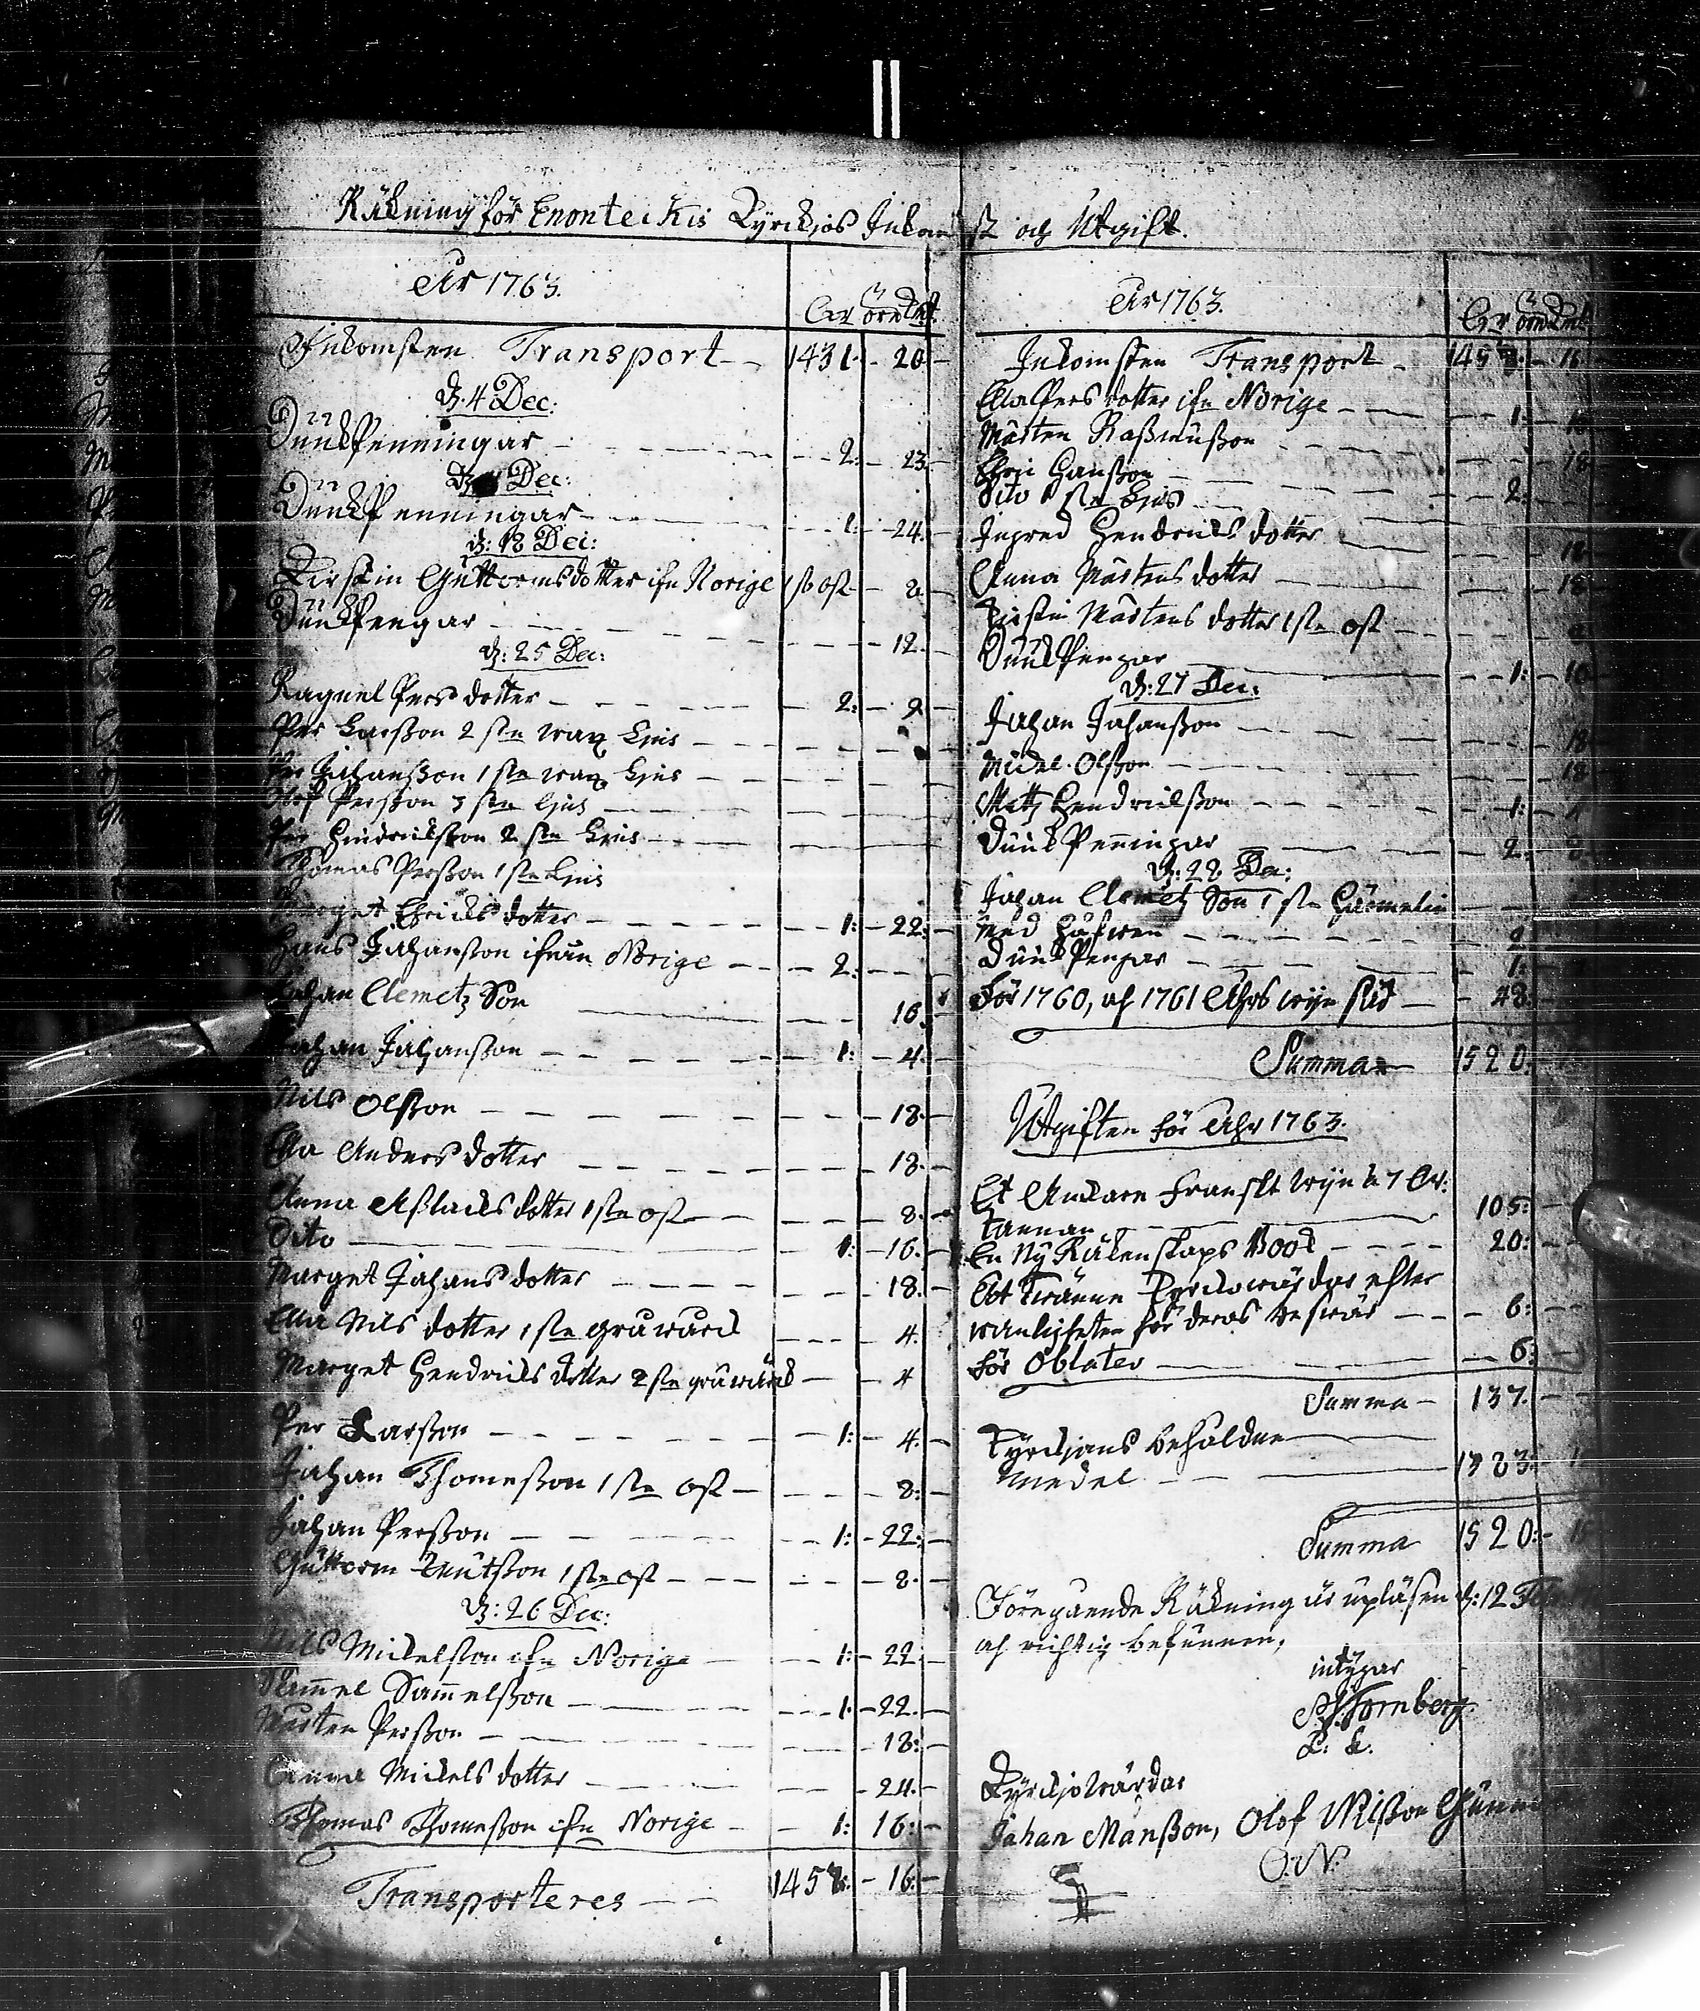 Räkning för Enonteckis Kyrckios Inkomst och Utgift.
Åhr 1763.
Inkomsten Transport 1431: 20:
d. 4 Dec:
Penningar 2: 23
Dec:
Penningar 1: 24:
d: 18 Dec:
Kirstin Guttormsdotter ifrn Norige 1 st ost 8
12
d: 25 Dec:
Ragnel Persdotter 2: 9
Per Larsson 2 st wax Lius
Per Johansson 1 st wax Lius
Olof Persson 3 st Lius
Per Hindricksson 2 st Lius
Thomas Persson 1 st Lius
Marget Ericksdotter 1: 22:
Hans Johansson ifrån Norige 2:
Johan Clemetz Son 16
Johan Johansson 1: 4
Nils Olsson 18
Ella Anders dotter 18
Anna Aslacks dotter 1 st ost 8
Dito 1: 16
Marget Johans dotter 18
Ella Nils dotter 1 st gråwarck 4
Marget Hendricks dotter 2 st gråwarck 4
Per Larsson 1: 4
Johan Thomesson 1 st ost 8:
Johan Persson 1: 22:
Guttorm Knutsson 1 st ost 8
d: 26 Dec:
Nils Mickelsson ifn Norige 1: 22
Sammel Sammelsson 1: 22
Mårten Persson 18:
Anna Mickels dotter 24
Thomas Thomesson ifn Norige 1: 16:
Transporteres 1458: 16:
Åhr 1763.
Inkomsten Transport 1458: 16
Ella Persdotter ifn Norige 1: 16
Mårten Rasmusson 18
Hansson 2:
Dito st Lius
Ingred Hendricks dotter 18
Anna Mårtens dotter 18
Kirstin Mårtens dotter 1 st ost
Pengar 1: 10
d: 27 Dec:
Johan Johansson 18
Mickel Olsson 18
Matz Hendricksson 1:
Penningar 2:
d: 28 Dec:
Johan Clemetz Son 1 st
med
Pengar 1:
För 1760, och 1761 Åhrs wijn 48
Summa 1520:
Utgiften för Åhr 1763.
Et Anckare Franskt wijn à 7
Kannan 105:
En Ny Räkenskaps Book 20:
Kyrckowärdar efter
wanligheten för deras beswär 6:
för Oblater 6:
Summa 137.
Kyrckjans behåldne
medel 1383:
Summa 1520: 16
Föregående Räkning är upläsen d: 12
och richtig befunnen,
intygar
Tornberg
Kyrckjowärdar
Johan Månsson, Olof Nilsson
O.N.